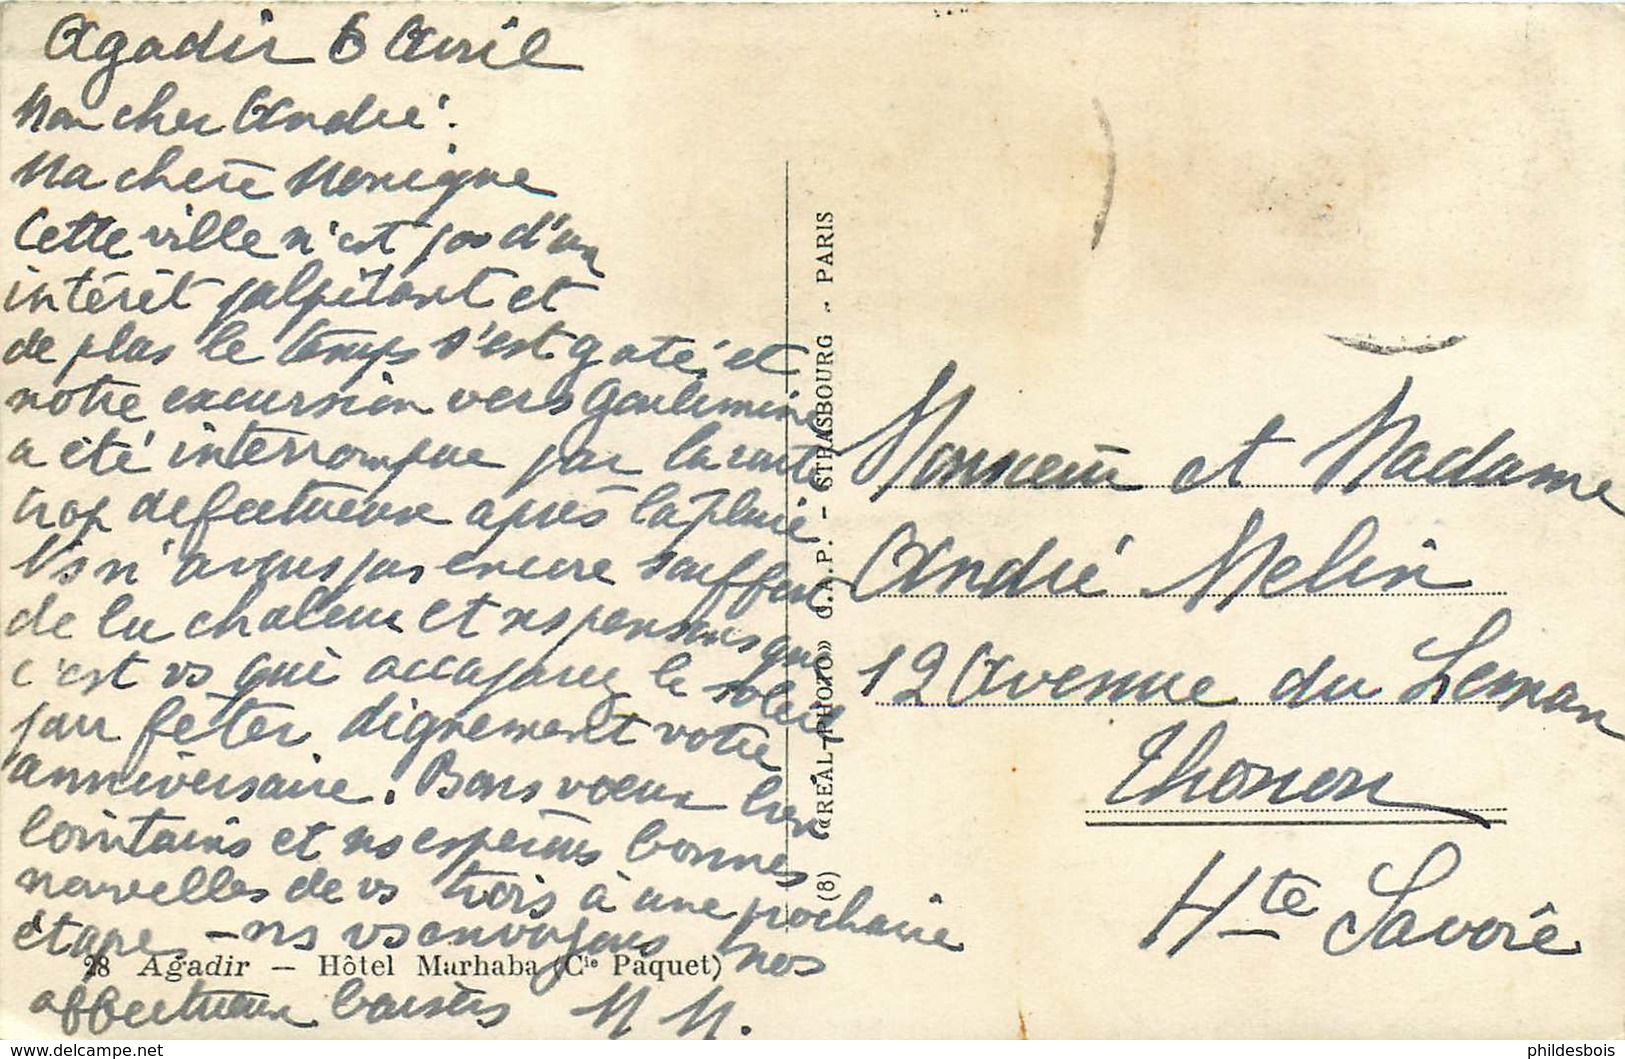 Agadir 6 Avril
Mon cher André.
Ma chère Monique
Cette ville n'est pas d'un
intérêt palpitant et
de plus le temps s'est gaté et
notre excursion vers Goulimine
a été interrompue par la route
trop defectueuse après la pluie
Ns n'avons pas encore souffert
de la chaleur et ns pensons que
c'est vs qui accaparez le soleil
pour fêter dignement votre
anniversaire. Bons voeux bien
lointains et ns espérons bonnes
nouvelles de vs trois à une prochaine
étape - ns vs envoyons nos
affectueux baisers M M.
28 Agadir — Hôtel Marhaba (Cie Paquet)
(8) «REAL-PHOTO» C.A.P. - STRASBOURG - PARIS
Monsieur et Madame
André Melin
12 Avenue du Leman
Thonon
Hte Savoie
phildesbois